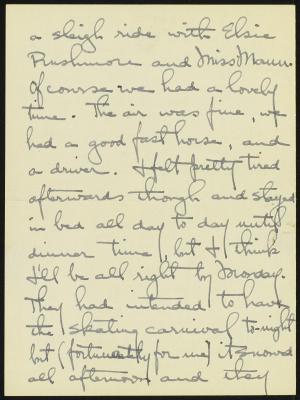 a sleigh ride with Elsie
Rushmore and Miss Mann.
Of course we had a lovely
time. The air was fine, we
had a good fast horse, and
a driver. I felt pretty tired
afterwards though and stayed
in bed all day to day until
dinner time, but I think
I'll be all right by Monday.
They had intended to have
the skating carnival to-night
but (fortunately for me) it snowed
all afternoon and they